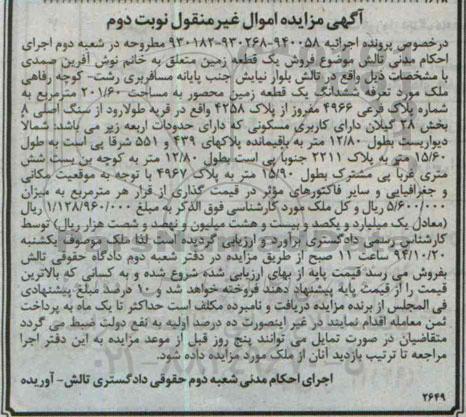 آگهی مزایده اموال غیرمنقول نوبت دوم
درخصوص پرونده اجرائیه ۹۴۰۰۵۸-۹۳۰۲۶۸-۹۳۰۱۸۳ مطروحه در شعبه دوم اجرای
احکام مدنی تالش موضوع فروش یک قطعه زمین متعلق به خانم نوش آفرین صمدی
با مشخصات ذیل واقع در تالش بلوار نیایش جنب پایانه مسافربری رشت- کوچه رفاهی
ملک مورد تعرفه ششدانگ یک قطعه زمین محصور به مساحت ۲۰۱/۶۰ مترمربع به
شماره پلاک فرعی ۴۹۶۶ مفروز از پلاک ۴۲۵۸ واقع در قریه طولارود از سنگ اصلی ۸
بخش ۲۸ گیلان دارای کاربری مسکونی که دارای حدودات اربعه زیر می باشد: شمالاً
دیواریست بطول ۱۲/۸۰ متر به باقیمانده پلاکهای ۴۳۹ و ۵۵۱ شرقا پی است به طول
۱۵/۶۰ متر به پلاک ۲۲۱۱ جنوبا پی است بطول ۱۲/۸۰ متر به کوچه بن بست شش
متری غربا پی مشترک بطول ۱۵/۹۰ متر به پلاک ۴۹۶۷ با توجه به موقعیت مکانی
و جغرافیایی و سایر فاکتورهای مؤثر در قیمت گذاری از قرار هر مترمربع به میزان
۵/۶۰۰/۰۰۰ ریال و کل ملک مورد کارشناسی فوق الذکر به مبلغ ۱/۱۲۸/۹۶۰/۰۰۰ ریال
(معادل یک میلیارد و یکصد و بیست و هشت میلیون و نهصد و شصت هزار ریال) توسط
کارشناس رسمی دادگستری برآورد و ارزیابی گردیده است لذا ملک موصوف یکشنبه
۹۴/۱۰/۲۰ ساعت ۱۱ صبح از طریق مزایده در دفتر شعبه دوم دادگاه حقوقی تالش
بفروش می رسد قیمت پایه از بهای ارزیابی شده شروع شده و به کسانی که بالاترین
قیمت را از قیمت پایه پیشنهاد دهند فروخته خواهد شد و ۱۰ درصد مبلغ پیشنهادی
فی المجلس از برنده مزایده دریافت و نامبرده مکلف است حداکثر تا یک ماه به پرداخت
ثمن معامله اقدام نمایند در غیر اینصورت ده درصد اولیه به نفع دولت ضبط می گردد
متقاضیان در صورت تمایل می توانند پنج روز قبل از موعد مزایده به این دفتر اجرا
مراجعه تا ترتیب بازدید آنان از ملک مورد مزایده داده شود.
اجرای احکام مدنی شعبه دوم حقوقی دادگستری تالش- آوریده
۲۶۴۹